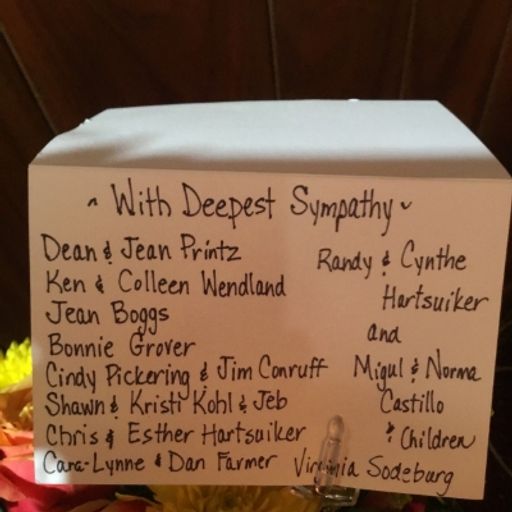 ~ With Deepest Sympathy ~
Dean & Jean Printz
Ken & Colleen Wendland
Jean Boggs
Bonnie Grover
Cindy Pickering & Jim Conruff
Shawn & Kristi Kohl & Jeb
Chris & Esther Hartsuiker
Cara-Lynne & Dan Farmer
Randy & Cynthe
Hartsuiker
and
Migul & Norma
Castillo
& Children
Virginia Sodeburg